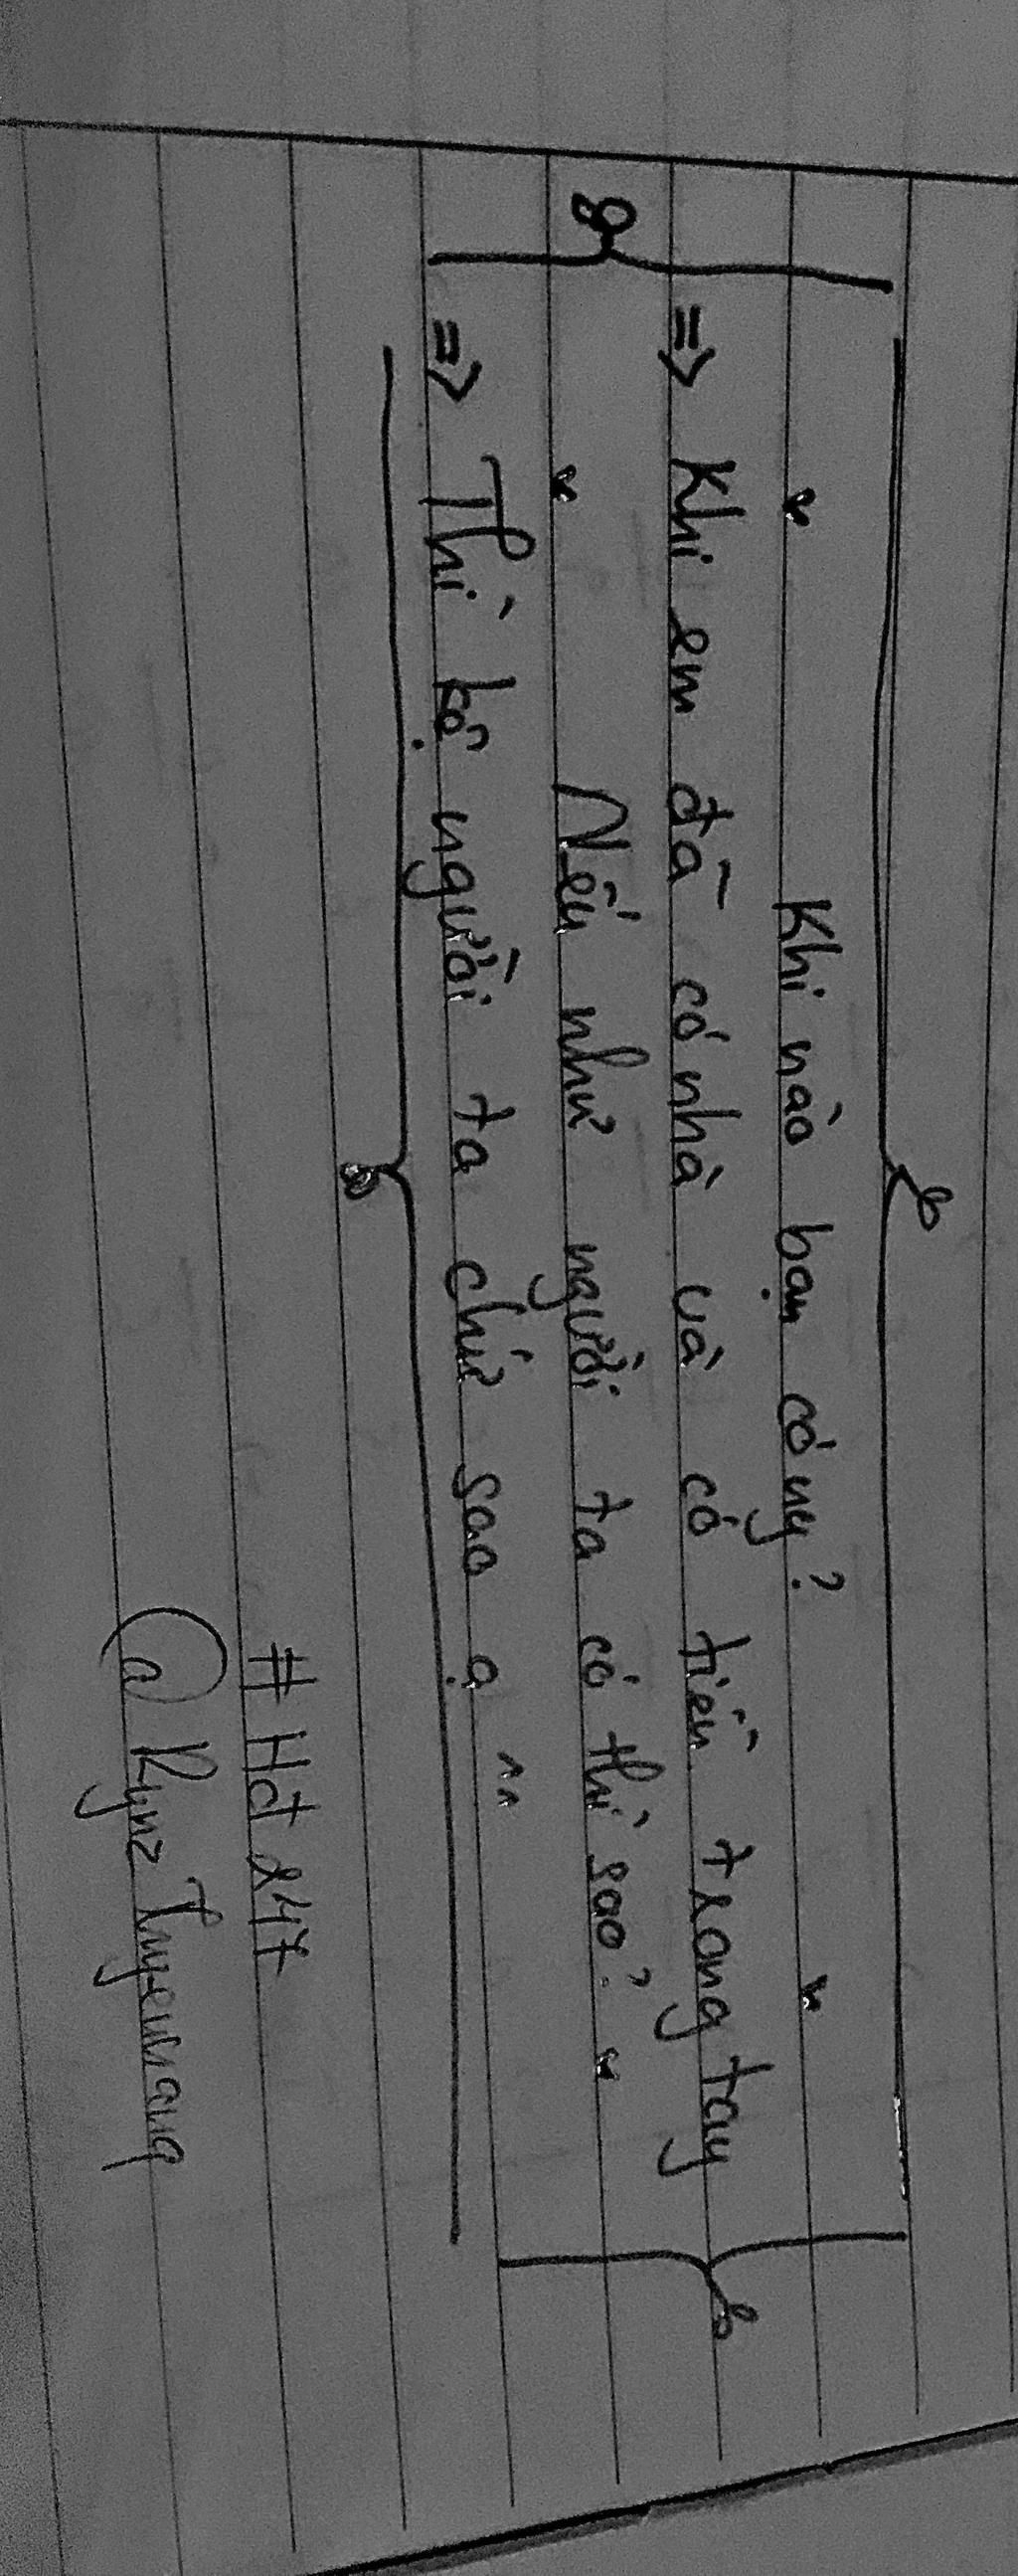 Khi nào bạn có ny?
=> Khi em đã có nhà và có tiền trong tay
Nếu như người ta có thì sao?
=> Thì kệ người ta chứ sao ạ ^^
# Hd 247
@